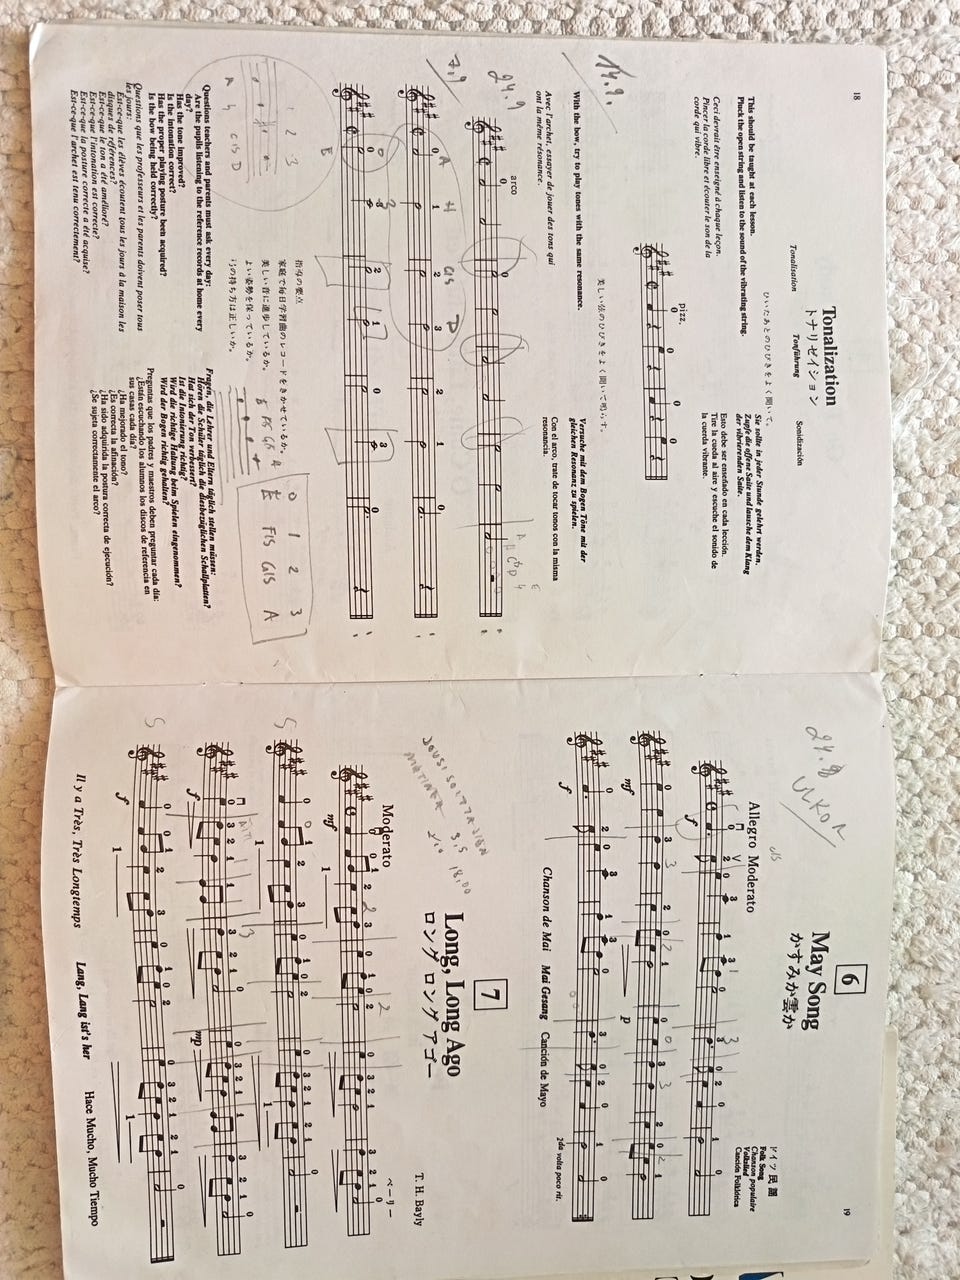 18
Tonalization
トナリゼイション
Tonalisation Tonführung Sonidización
ひいたあとのひびきをよく聞いて。
This should be taught at each lesson.
Pluck the open string and listen to the sound of the vibrating string.
Ceci devrait être enseigné à chaque leçon.
Pincer la corde libre et écouter le son de la
corde qui vibre.
Sie sollte in jeder Stunde gelehrt werden.
Zupfe die offene Saite und lausche dem Klang
der vibrierenden Saite.
Esto debe ser enseñado en cada lección.
Tire la cuerda al aire y escuche el sonido de
la cuerda vibrante.
pizz.
0 0 0 0
美しい弦のひびきをよく聞いて鳴らす。
14.9.
With the bow, try to play tones with the same resonance.
Avec l'archet, essayer de jouer des tons qui
ont la même résonance.
Versuche mit dem Bogen Töne mit der
gleichen Resonanz zu spielen.
Con el arco, trate de tocar tonos con la misma
resonancia.
24.9
arco
7.9
指導の要点
家庭で毎日学習曲のレコードをきかせているか。
美しい音に進歩しているか。
よい姿勢を保っているか。
弓の持ち方は正しいか。
0 1 2 3
E FIS GIS A
Questions teachers and parents must ask every day:
Are the pupils listening to the reference records at home every
day?
Has the tone improved?
Is the intonation correct?
Has the proper playing posture been acquired?
Is the bow being held correctly?
Questions que les professeurs et les parents doivent poser tous
les jours:
Est-ce-que les élèves écoutent tous les jours à la maison les
disques de références?
Est-ce-que le ton a été amélioré?
Est-ce-que l'intonation est correcte?
Est-ce-que la posture correcte a été acquise?
Est-ce-que l'archet est tenu correctement?
Fragen, die Lehrer und Eltern täglich stellen müssen:
Hören die Schüler täglich die diesbezüglichen Schallplatten?
Hat sich der Ton verbessert?
Ist die Intonierung richtig?
Wird die richtige Haltung beim Spielen eingenommen?
Wird der Bogen richtig gehalten?
Preguntas que los padres y maestros deben preguntar cada día:
¿Están escuchando los alumnos los discos de referencia en
sus casas cada día?
¿Ha mejorado el tono?
¿Es correcta la afinación?
¿Ha sido adquirida la postura correcta de ejecución?
¿Se sujeta correctamente el arco?
19
24.9 ULKOA
6
May Song
かすみか雲か
ドイツ民謡
Folk Song
Chanson populaire
Volkslied
Canción Folklórica
Allegro Moderato
f
mf
p
f
2da volta poco rit.
Chanson de Mai Mai Gesang Canción de Mayo
7
Long, Long Ago
ロング ロング アゴー
ベーリー
T. H. Bayly
Moderato
mf
f
mp
f
Il y a Très, Très Longtemps Lang, Lang ist's her Hace Mucho, Mucho Tiempo